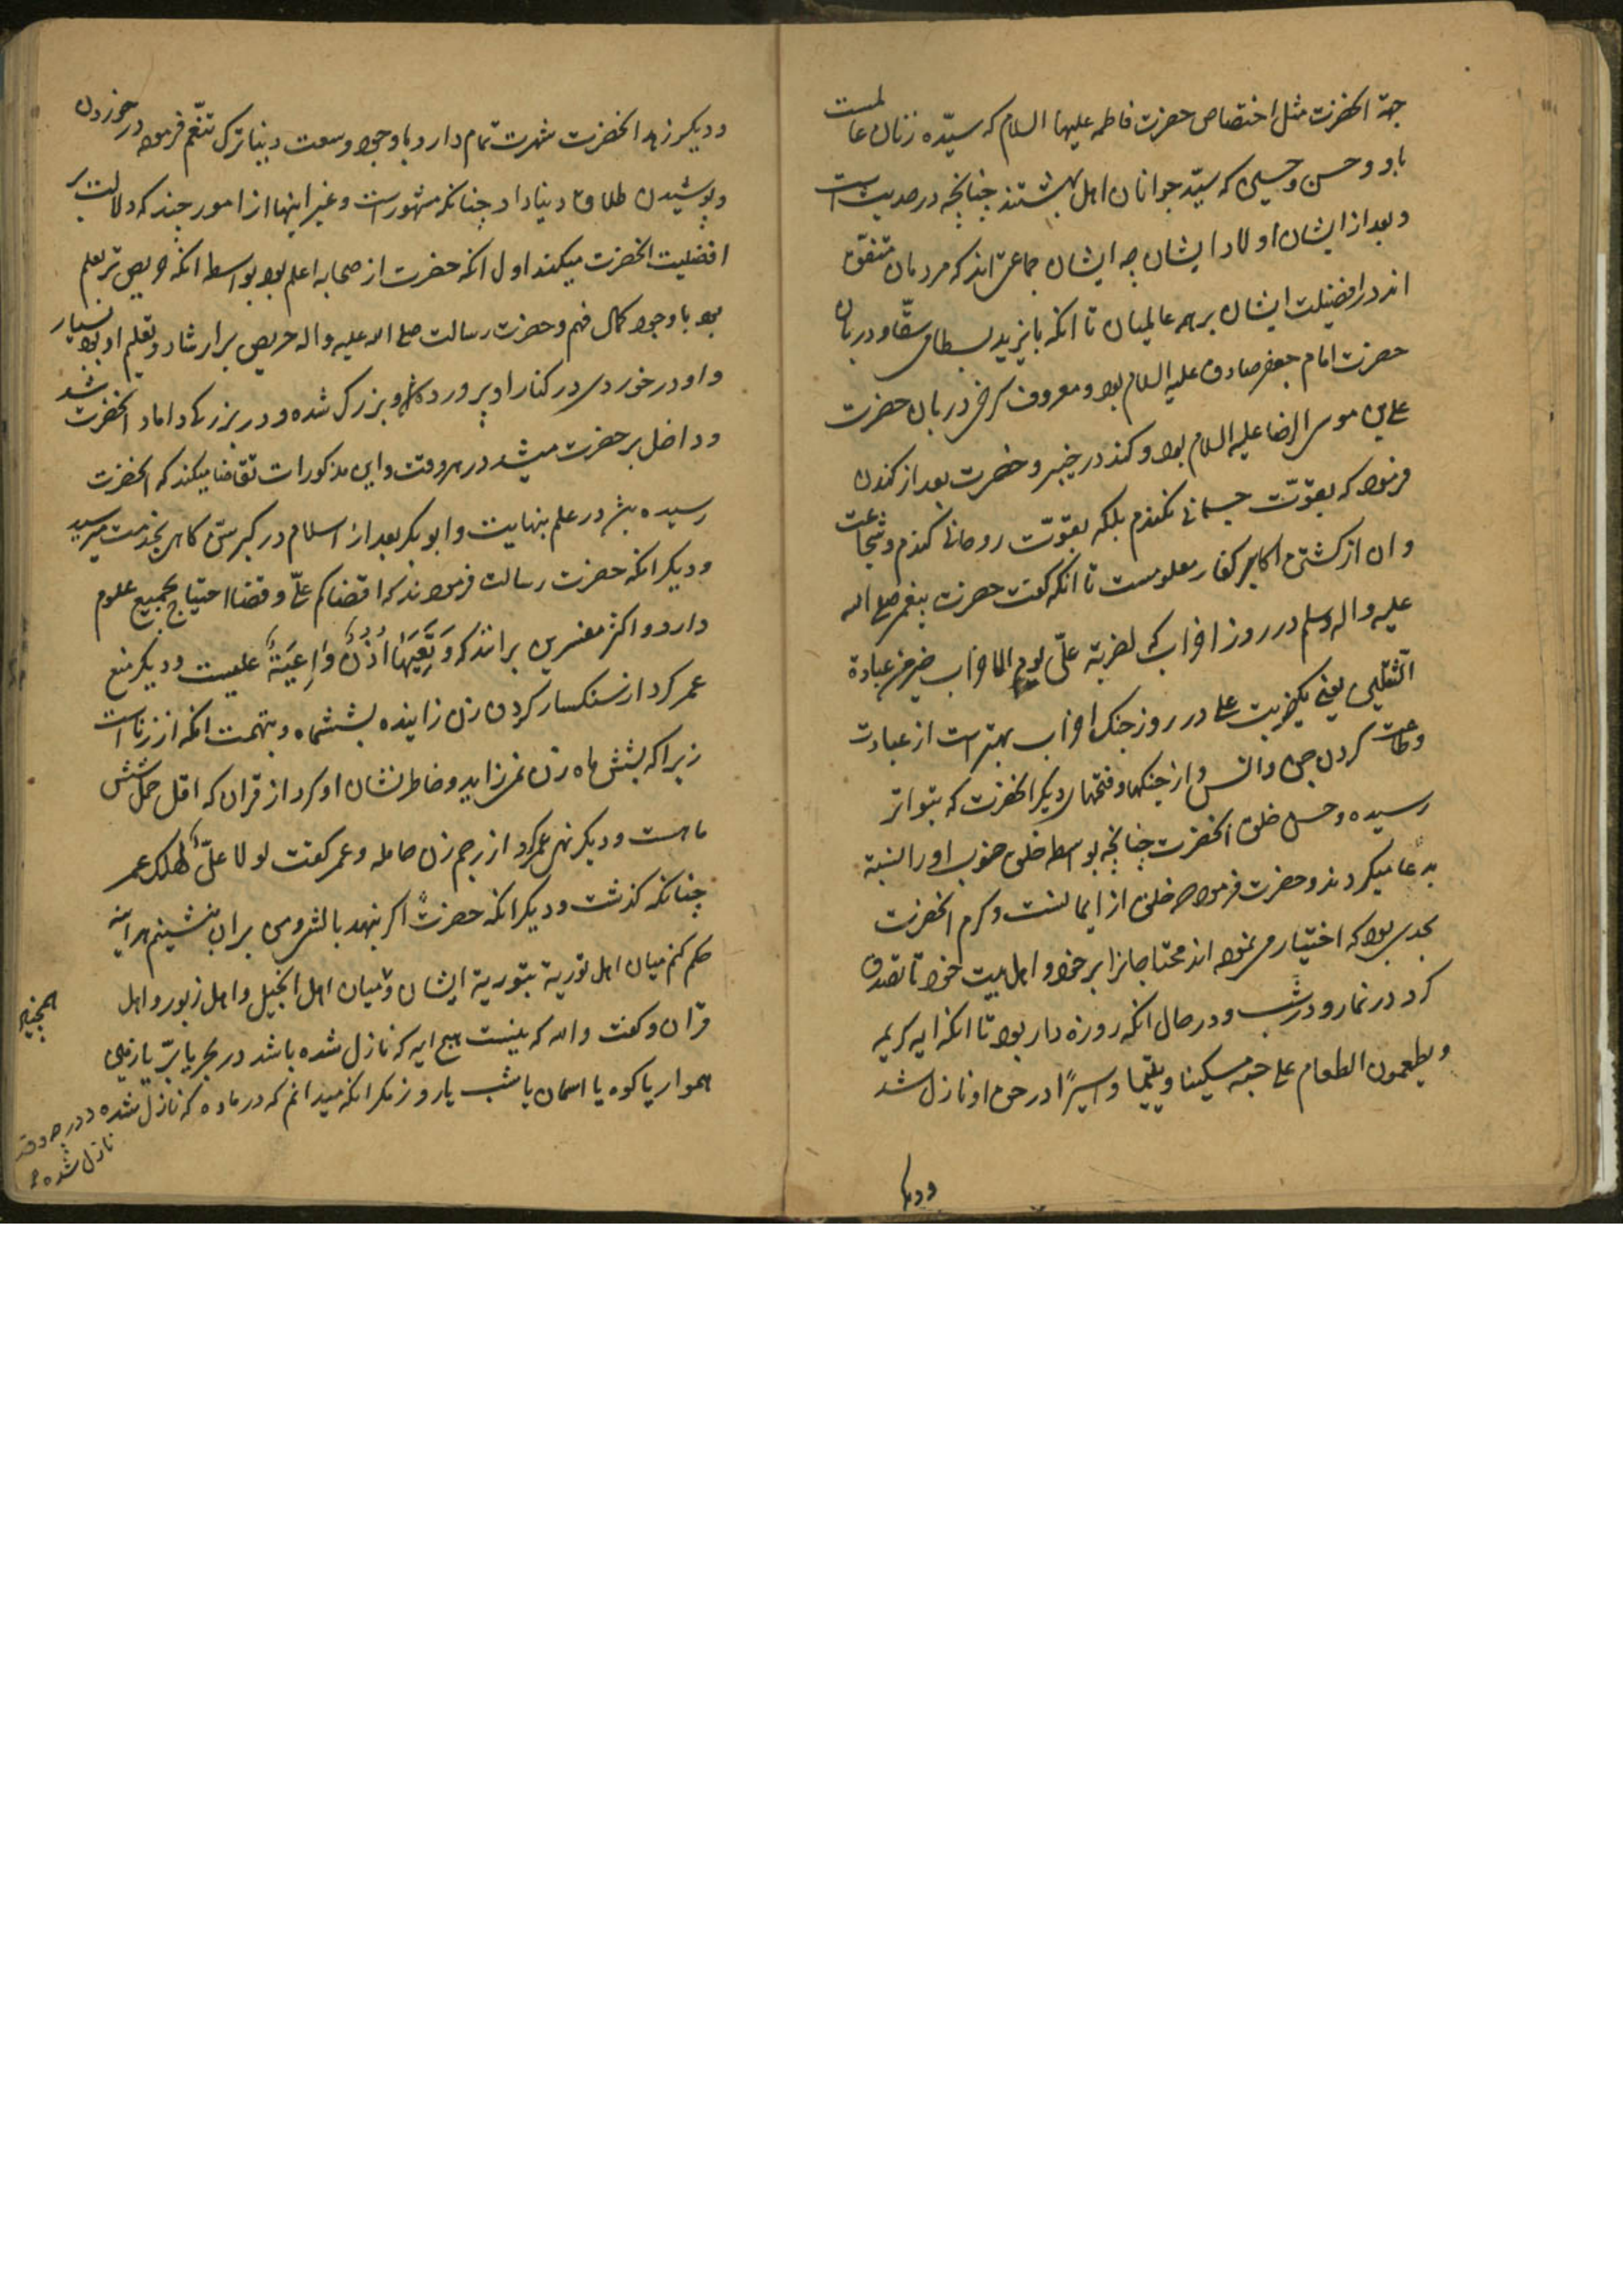 جهة انحضرت مثل اختصاص حضرت فاطمه عليها السلام كه سيّده زنان عالمست
باو و حسن و حسين كه سيّد جوانان اهل بهشتند چنانچه در حديث است
و بعد از ايشان اولاد ايشان چه ايشان جماعتى اند كه مردمان متفق
اند در افضيلت ايشان بر همه عالميان تا انكه بايزيد بسطامى سقّا و دربان
حضرت امام جعفر صادق عليه السلام بود و معروف كرخى دربان حضرت
على بن موسى الرضا عليه السلام بود و كند در خيبر و حضرت بعد از كندن
فرمود كه بقوّت جسمانى نكندم بلكه بقوّت روحانى كندم و شجاعت
و ان از كشتن اكابر كفار معلومست تا انكه گفت حضرت پيغمبر صلى الله
عليه و اله و سلم در روز احزاب كه لضربة علىّ يوم الاحزاب خير من عبادة
الثّقلين يعنى يكضربت على در روز جنك احزاب بهتر است از عبادت
و طاعت كردن جن و انس و از جنكها و فتحهاى ديكر انحضرت كه بتواتر
رسيده و حسن خلق انحضرت چنانچه بواسطه خلق خوب او را نسبة
بدعا ميكردند و حضرت فرمود حسن خلق از ايمانست و كرم انحضرت
بحدى بود كه اختيار مى نمود اند محتاجانرا بر خود و اهل بيت خود تا تصدق
كرد در نماز و در شب و در حال انكه روزه دار بود تا انكه ايه كريمه
و يطعمون الطعام على حبه مسكينا و يتيما و اسيرًا در حق او نازل شد
و ديكر
و ديكر زهد انحضرت شهرت تمام دارد با وجود وسعت دنيا ترك تنعّم فرمود در خوردن
و پوشيدن طلاق دنيا داد چنانكه مشهور است و غير اينها از امور چند كه دلالت بر
افضليت انحضرت ميكند اول انكه حضرت از صحابه اعلم بود بواسطه انكه حريص تر بعلم
بود با وجود كمال فهم و حضرت رسالت صلى الله عليه و اله حريص بر ارشاد و تعليم او بود بسيار
و او در خوردى در كنار او پرورده و بزرك شده و در بزركى داماد انحضرت شد
و داخل بر حضرت ميشد در هر وقت و اين مذكورات تقاضا ميكند كه انحضرت
رسيده باشد در علم بنهايت و ابو بكر بعد از اسلام در كبر سنّ كاهى بخدمت ميرسيد
و ديكر انكه حضرت رسالت فرمودند كه اقضاكم علىّ و قضا احتياج بجميع علوم
دارد و اكثر مفسرين برانند كه وَ تَعِيَهَا اُذُنٌ وَاعِيَةٌ عليست و ديكر منع
عمر كرد از سنكسار كردن زن زاينده بششماه و بتهمت انكه از زناست
زيرا كه بشش ماه زن نمى زايد و خاطر نشان او كرد از قران كه اقل حمل شش
ماهست و ديكر نهى عمر كرد از رجم زن حامله و عمر گفت لولا علىّ لهلك عمر
چنانكه گذشت و ديكر انكه حضرت اكر بنهد بالش و من بران بنشينم هر اينه
حكم كنم ميان اهل تورية بتورية ايشان و ميان اهل انجيل و اهل زبور و اهل
قران و گفت والله كه نيست هيچ ايه كه نازل شده باشد در بحر يا برّ يا زمين
هموار يا كوه يا اسمان يا شب يا روز مكر انكه ميدانم كه در ماده كه نازل شده و در چه وقت
نازل شده
همچنين